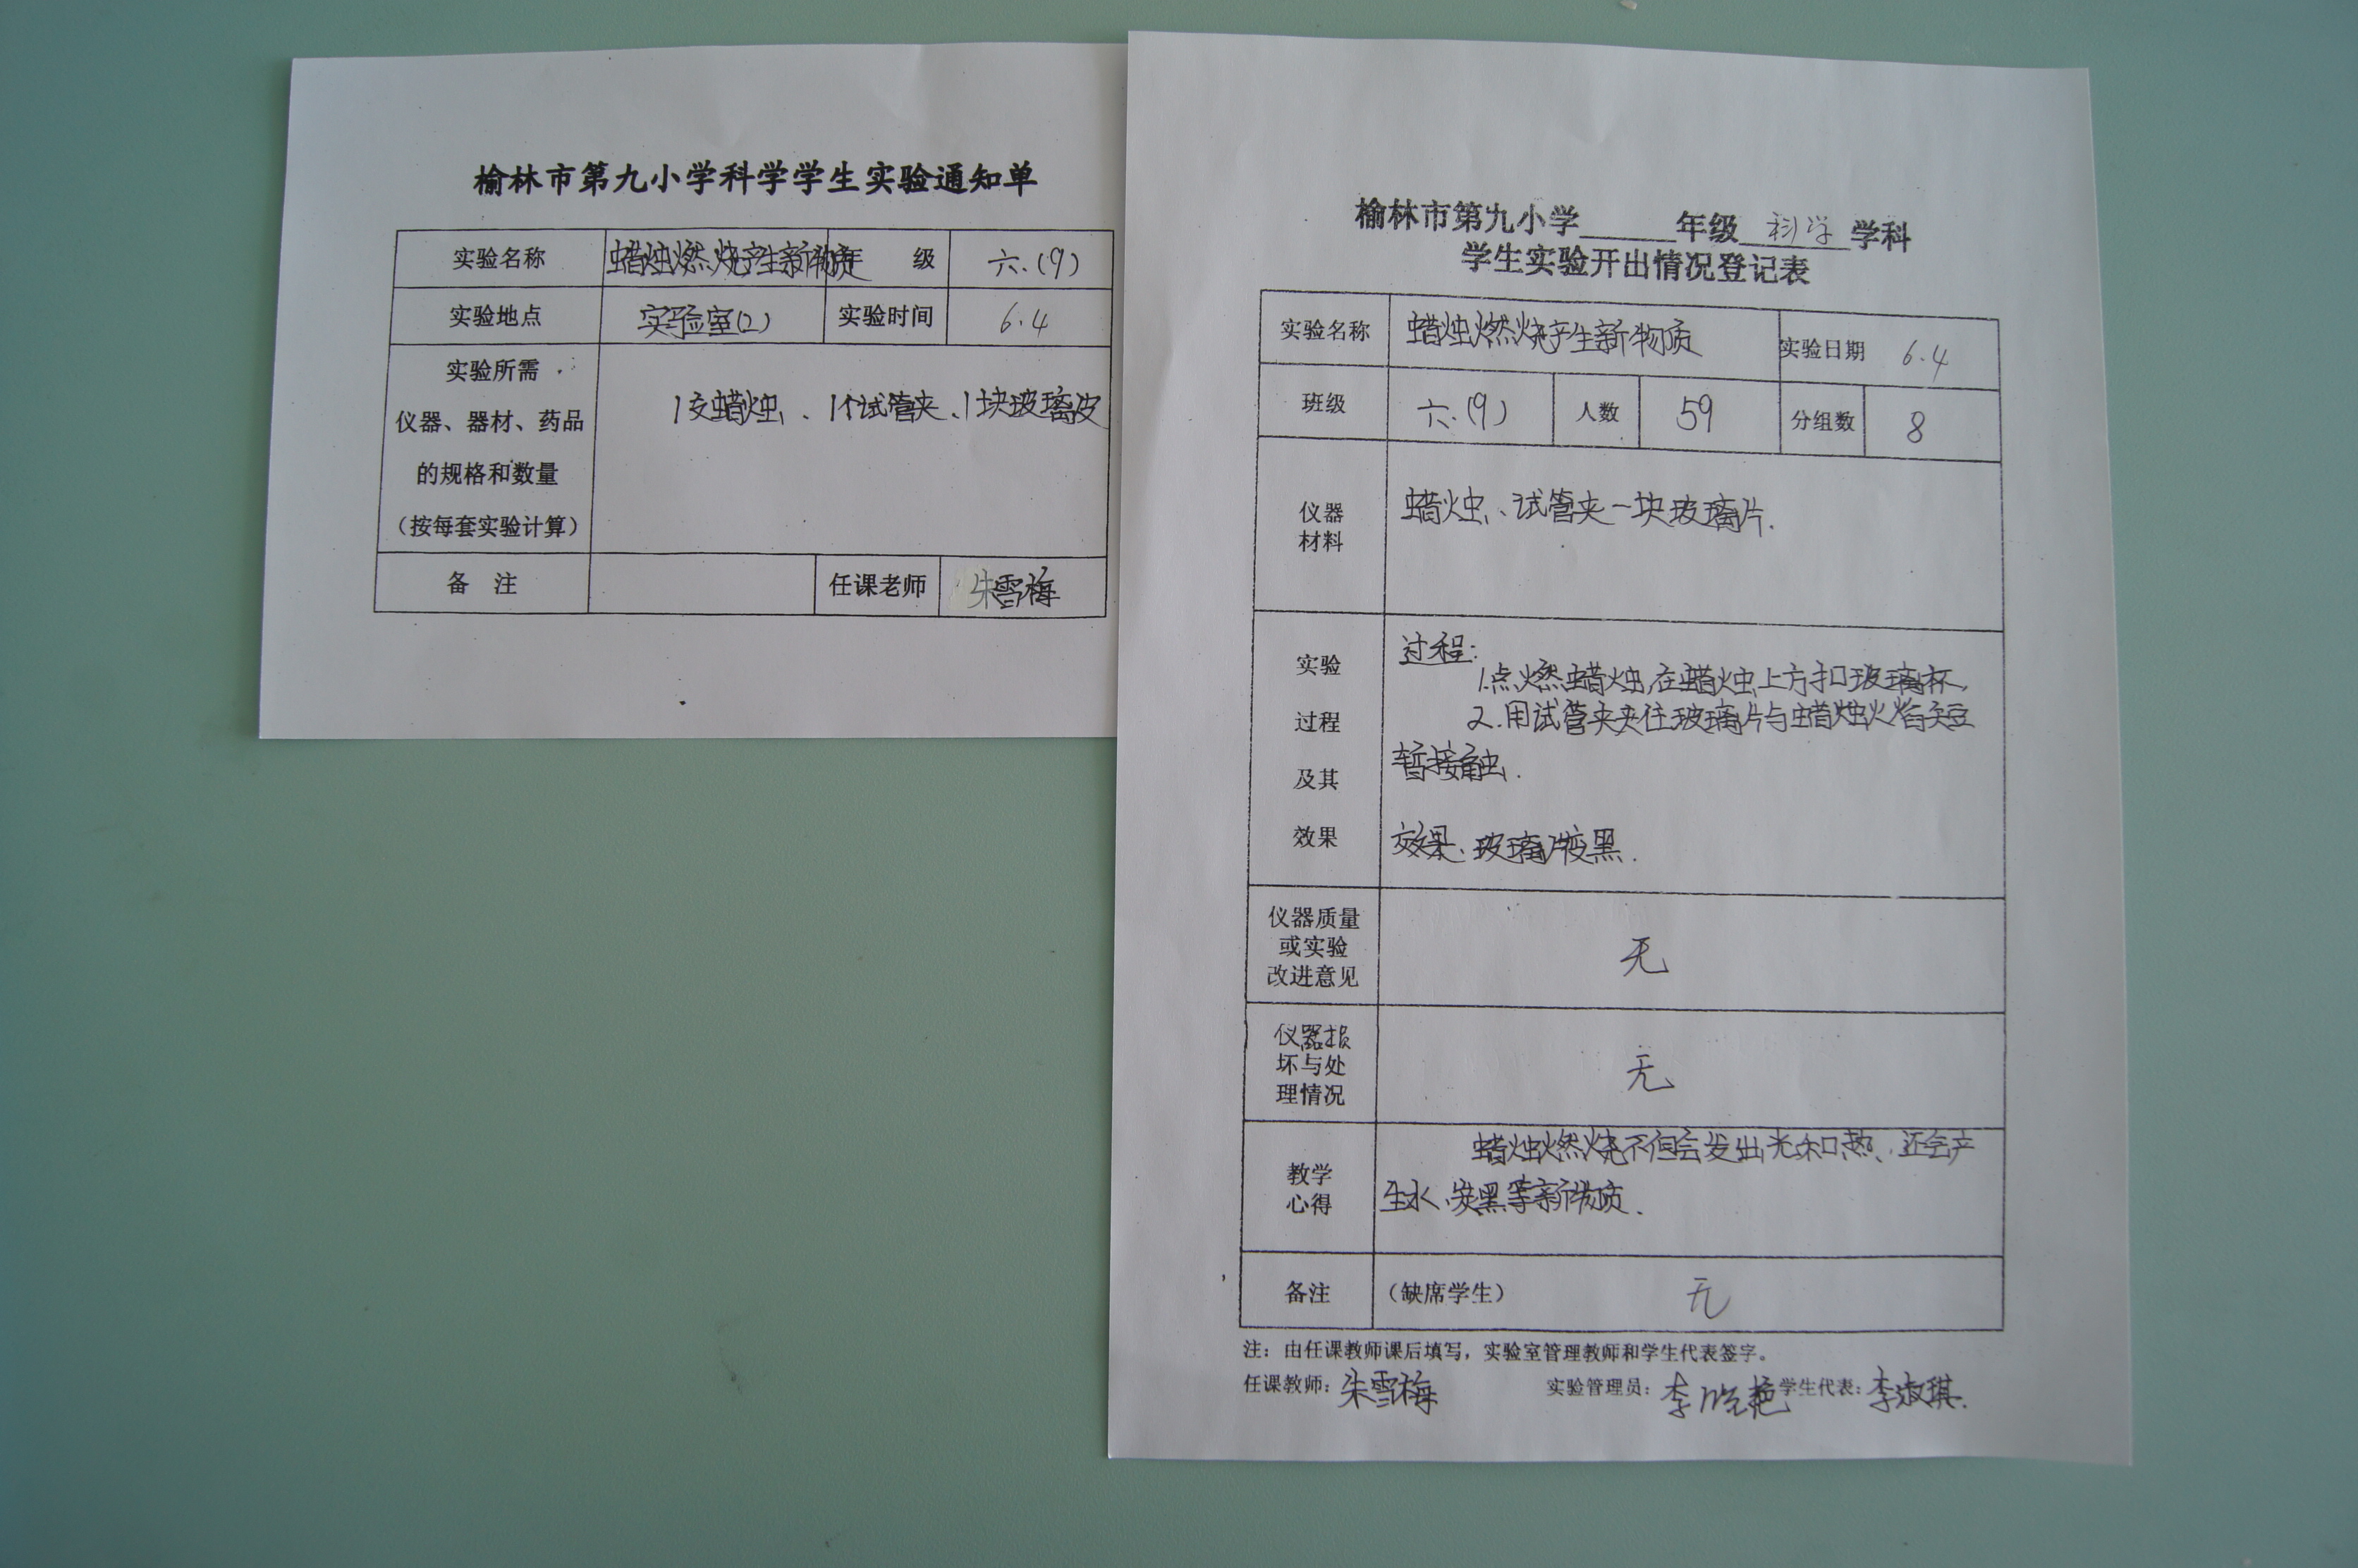 榆林市第九小学科学学生实验通知单
实验名称 蜡烛燃烧产生新物质 年 级 六.(9)
实验地点 实验室(2) 实验时间 6.4
实验所需
仪器、器材、药品
的规格和数量
(按每套实验计算)
1支蜡烛、1个试管夹、1块玻璃皮
备 注 任课老师 朱雪梅
榆林市第九小学______年级 科学 学科
学生实验开出情况登记表
实验名称 蜡烛燃烧产生新物质 实验日期 6.4
班级 六.(9) 人数 59 分组数 8
仪器
材料
蜡烛、试管夹一块玻璃片.
实验
过程
及其
效果
过程:
1.点燃蜡烛,在蜡烛上方扣玻璃杯,
2.用试管夹夹住玻璃片与蜡烛火焰短
暂接触.
效果、玻璃片变黑.
仪器质量
或实验
改进意见
无
仪器损
坏与处
理情况
无
教学
心得
蜡烛燃烧不但会发出光和热、还会产
生水、炭黑等新物质.
备注 (缺席学生) 无
注:由任课教师课后填写,实验室管理教师和学生代表签字。
任课教师:朱雪梅 实验管理员:李晓艳 学生代表:李淑琪.